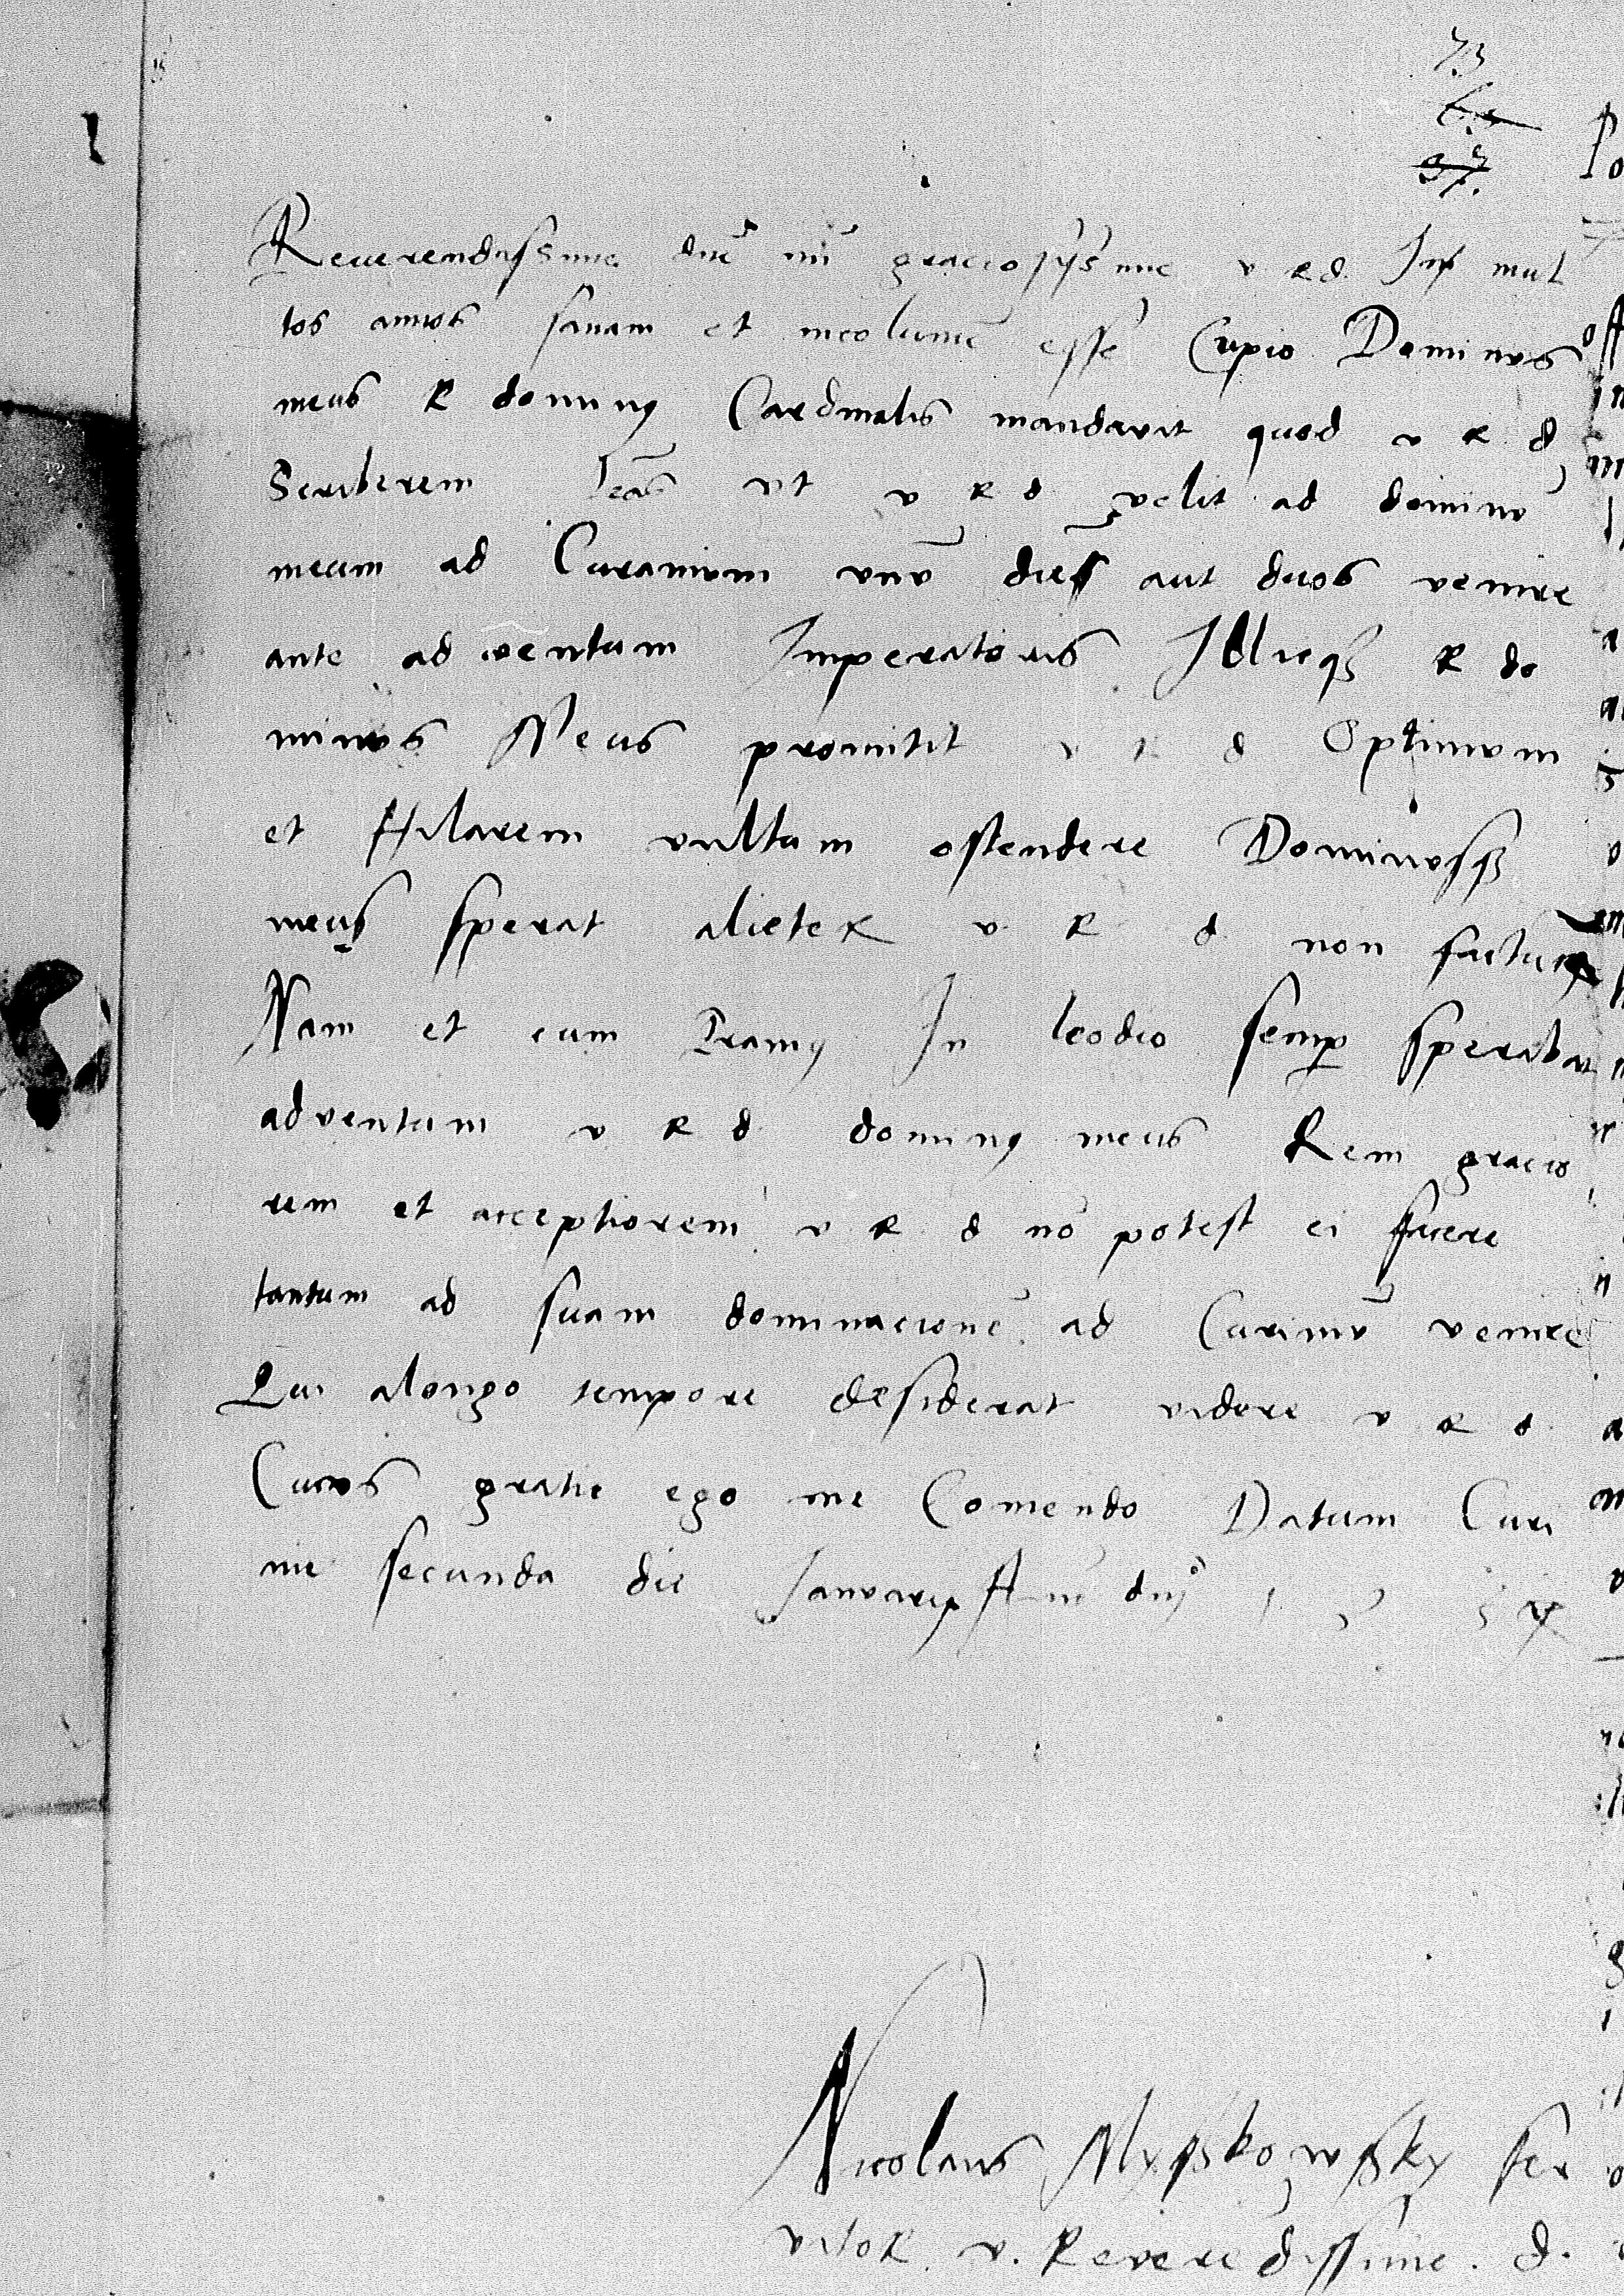 73
37.
Reuerendissime dne mi graciosissime v r d In mul
tos annos sanam et incolumē esse Cupio Dominus
meus R dominus Cardinalis mandavit quod v R d
Scriberem has vt v R d velit ad dominū
meum ad Curamum vnū diē aut duos venire
ante adventum Imperatoris Illicq3 R do
minus Meus promitit v R d Optimum
et Hilarem vultum ostendere Dominusq3
meus sperat alieter v R d non factur
Nam et cum eramus In leodio semp sperabat
adventum v R d dominus meus Rem gracio
rem et acceptiorem v R d nō potest ei facere
tantum ad suam dominacionē ad Curimū venire
Qui alongo tempore desiderat videre v R d
Cuius gratie ego me Comendo Datum Curi
me secunda die Januarij An dnj 1
Nicolaus Myszkowsky ser
vitor v. Revere dissime. d.